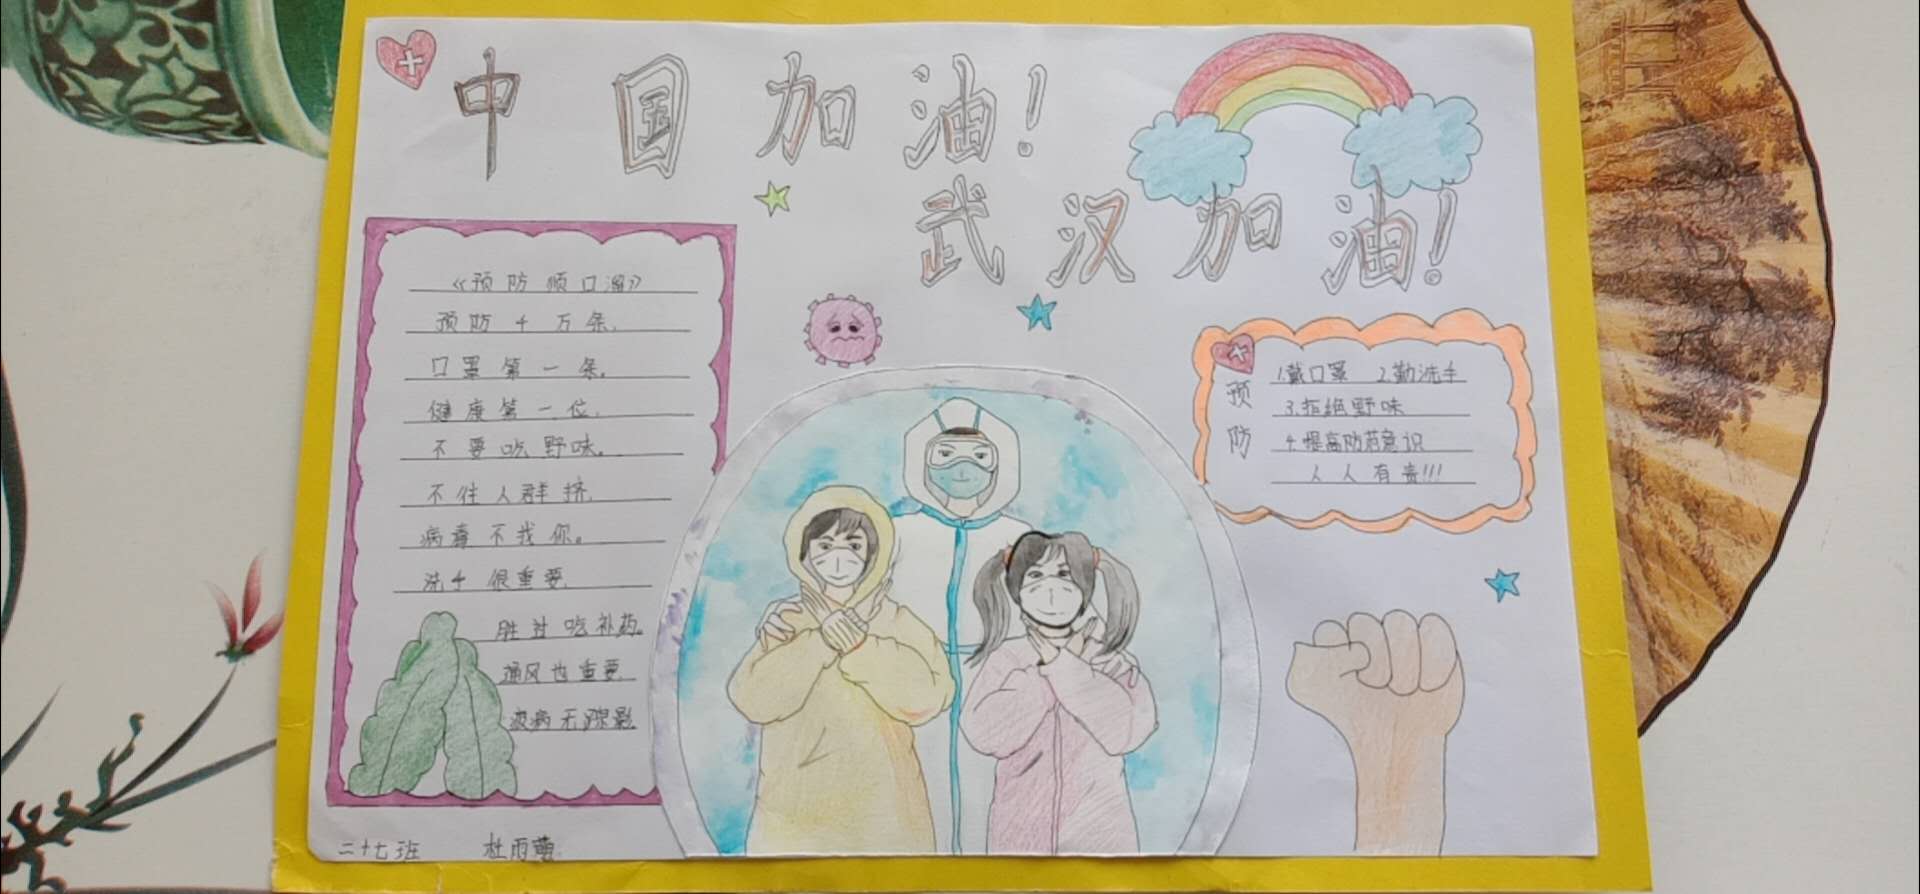 中国加油!
武汉加油!
《预防顺口溜》
预防千万条,
口罩第一条。
健康第一位,
不要吃野味。
不往人群挤,
病毒不找你。
洗手很重要,
胜过吃补药。
通风也重要,
疫病无踪影
预防
1.戴口罩 2.勤洗手
3.拒绝野味
4.提高防范意识
人人有责!!!
二十七班 杜雨萱